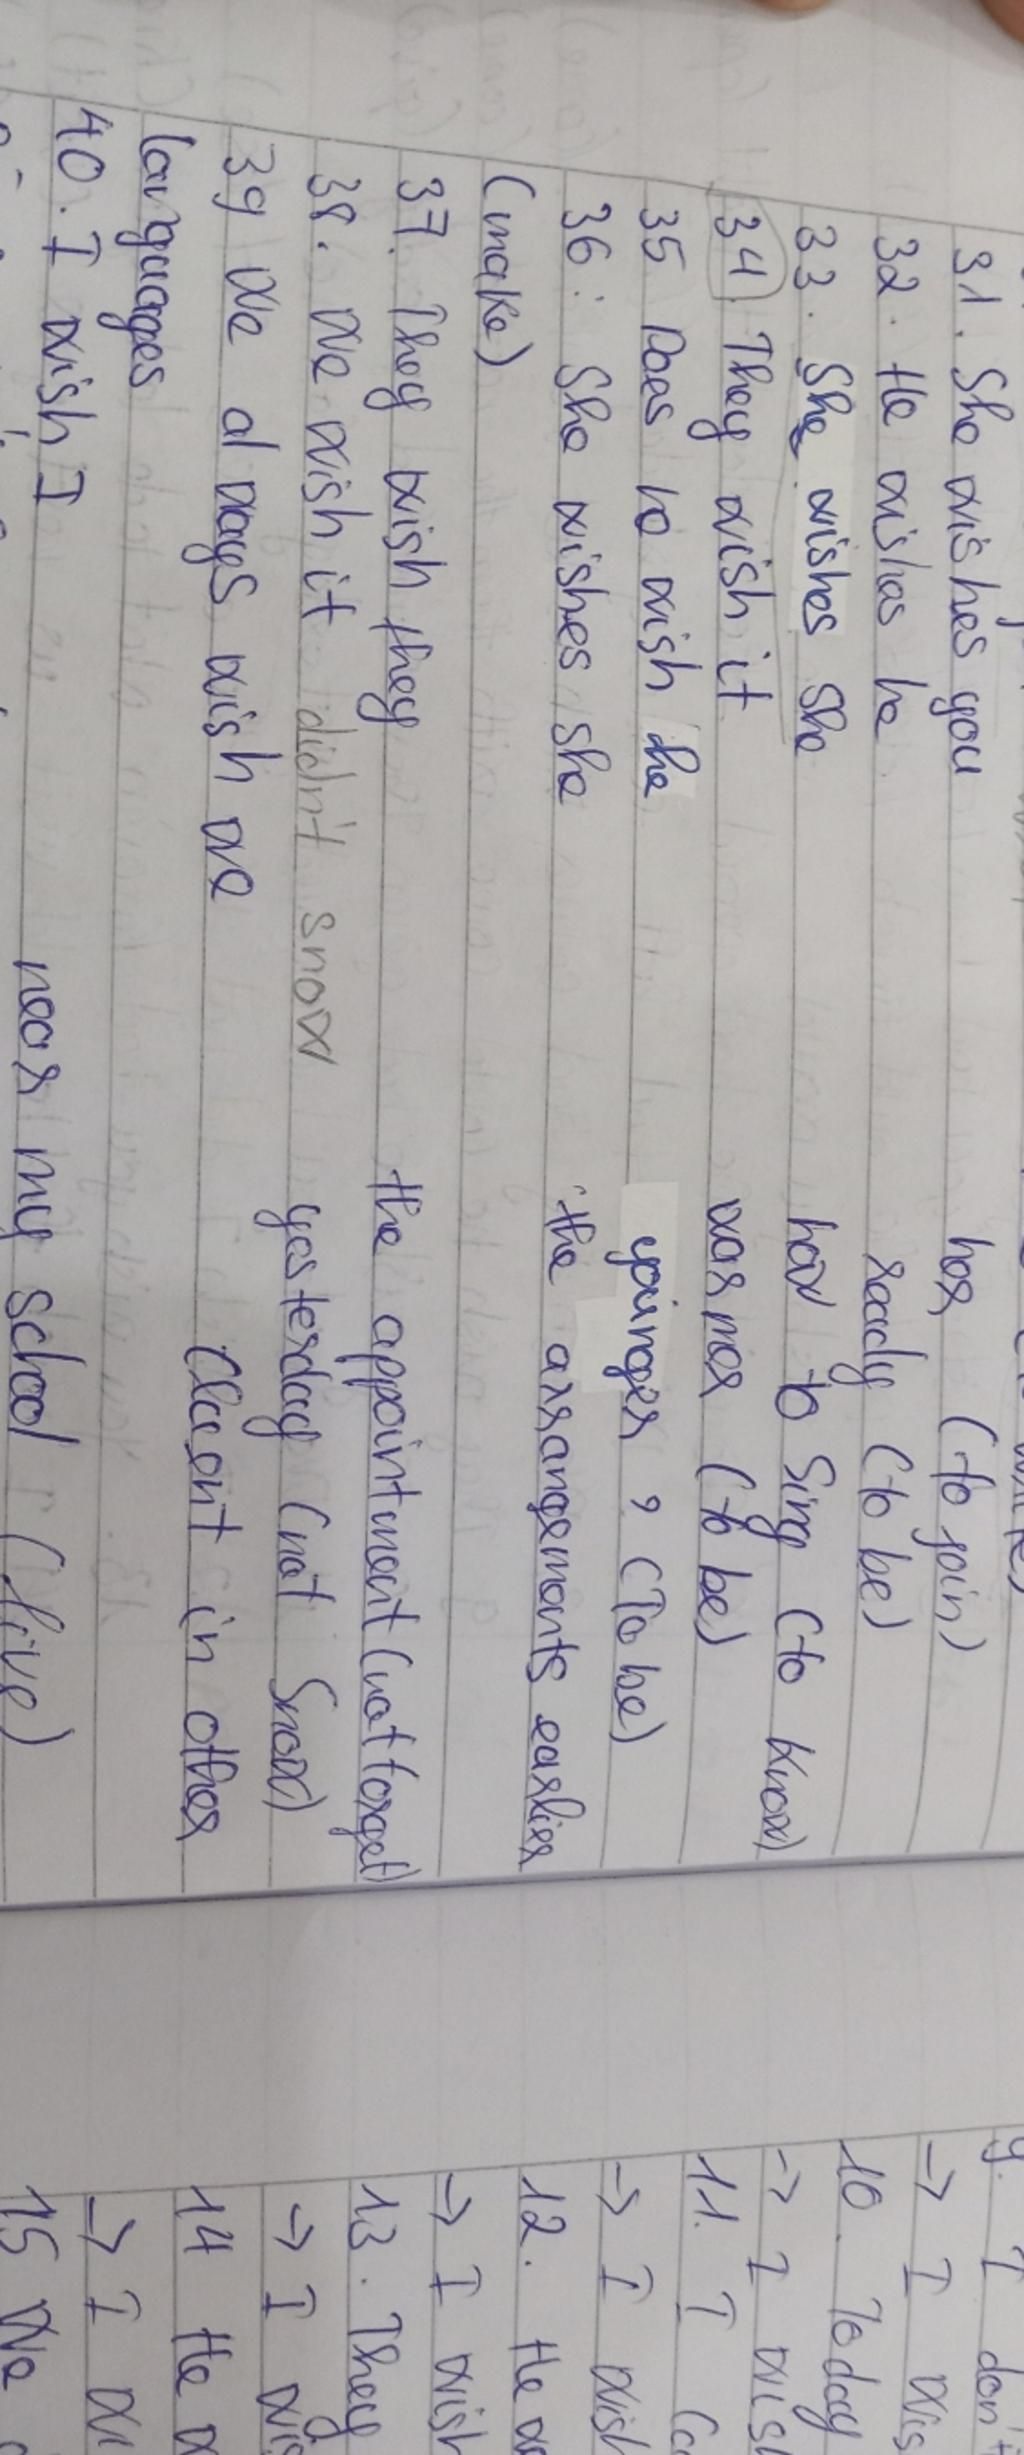 31. She wishes you her (to join)
32. He wishes he ready (to be)
33. She wishes she how to Sing (to know)
34. They wish it warmer (to be)
35 Does he wish he younger, (To be)
36: She wishes she the arrangements earlier
(make)
37. They wish they the appointment (not forget)
38. We wish it didn't snow yesterday (not Snow)
39 We always wish we fluent in other
languages
40. I wish I near my school (live)
9. I don't
→ I wis
10. Today
→ I wis
11. I
→ I wish
12. He
→ I wish
13. They
→ I wis
14 He
→ I wi
15 We